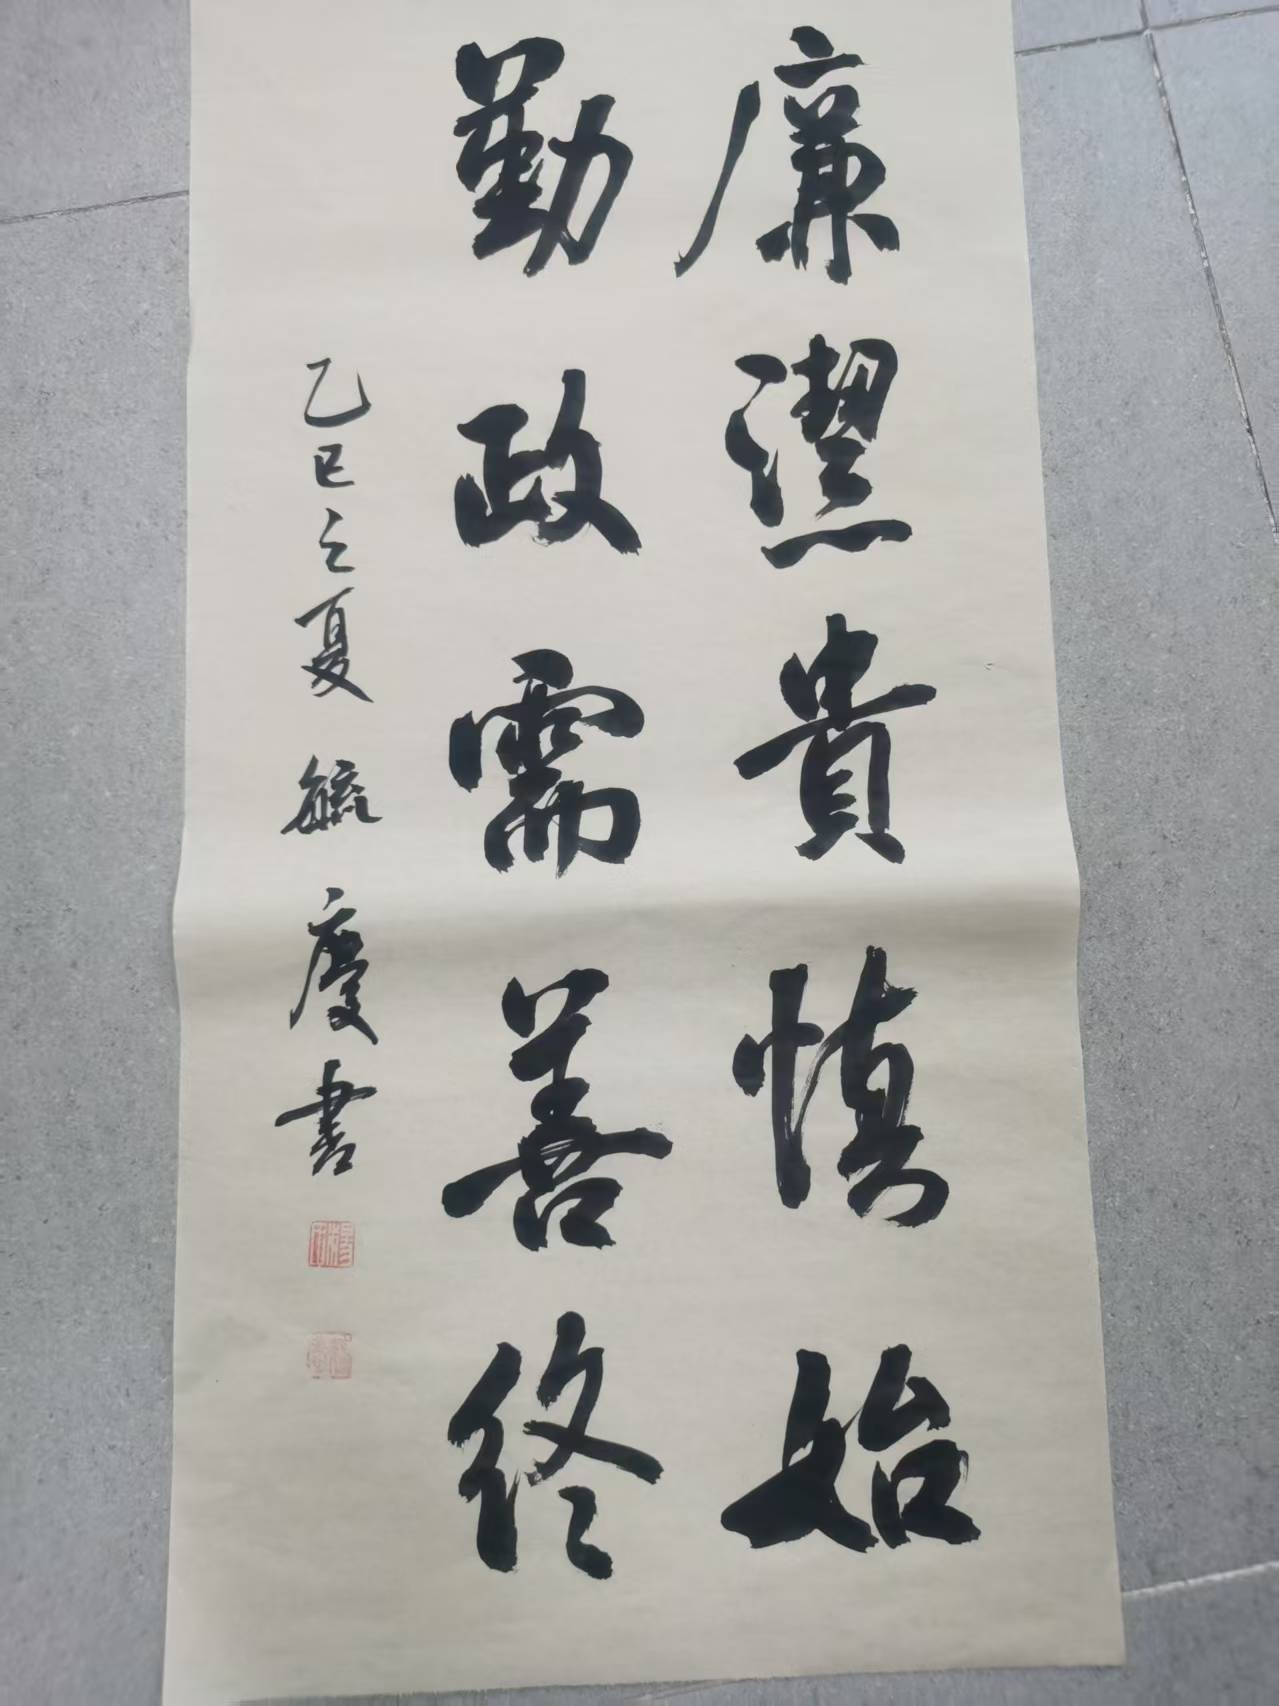 廉潔貴慎始
勤政需善終
乙巳之夏 毓慶書